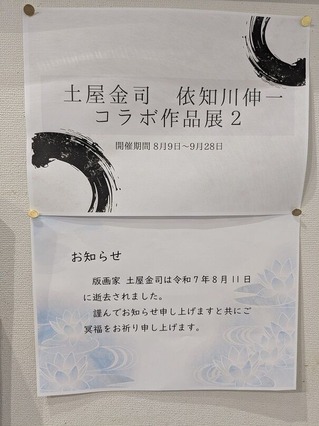 土屋金司　依知川伸一
コラボ作品展２
開催期間 8月9日～9月28日
お知らせ
版画家 土屋金司は令和７年８月１１日
に逝去されました。
謹んでお知らせ申し上げますと共にご
冥福をお祈り申し上げます。